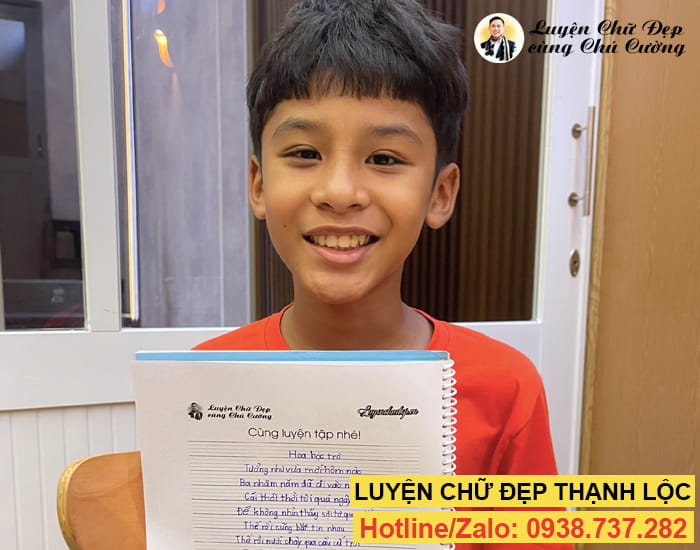 Luyện Chữ Đẹp
cùng Chú Cường
Luyện Chữ Đẹp
cùng Chú Cường
Luyenchudep.vn
Cùng luyện tập nhé!
Hoa học trò
Tưởng như vừa mới hôm nào
Ba nhăm năm đã đi vào
Cái thời tôi quá ngây
Để không nhìn thấy
Thế rồi cũng bặt tin nhau
Thế rồi nước chảy qua cầu cứ trôi
LUYỆN CHỮ ĐẸP THẠNH LỘC
Hotline/Zalo: 0938.737.282